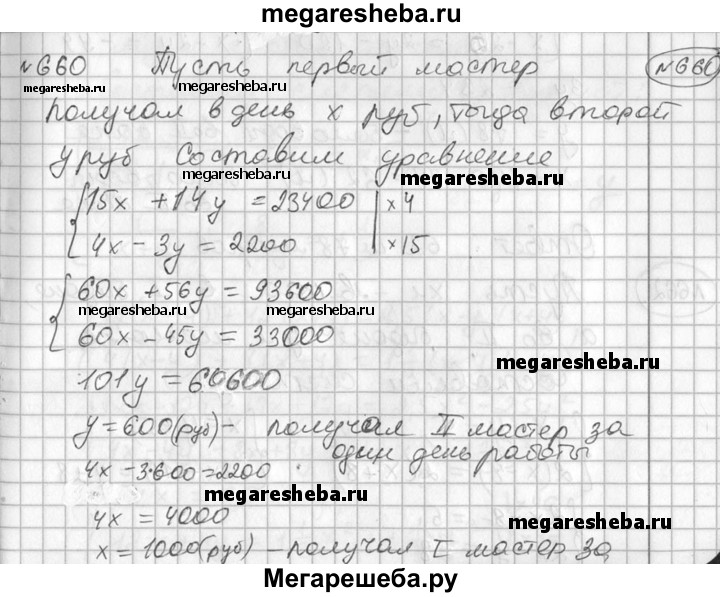 megaresheba.ru
№660 Пусть первый мастер №660
megaresheba.ru megaresheba.ru
получал в день x руб, тогда второй
y руб Составим уравнение
megaresheba.ru megaresheba.ru
15x + 14y = 23400 | x 4
4x - 3y = 2200 | x 15
60x + 56y = 93600
megaresheba.ru megaresheba.ru
60x - 45y = 33000
megaresheba.ru
101y = 60600
y = 600(руб) - получал II мастер за
один день работы
4x - 3·600 = 2200
megaresheba.ru
4x = 4000
megaresheba.ru
x = 1000(руб) - получал I мастер за
Мегарешеба.ру